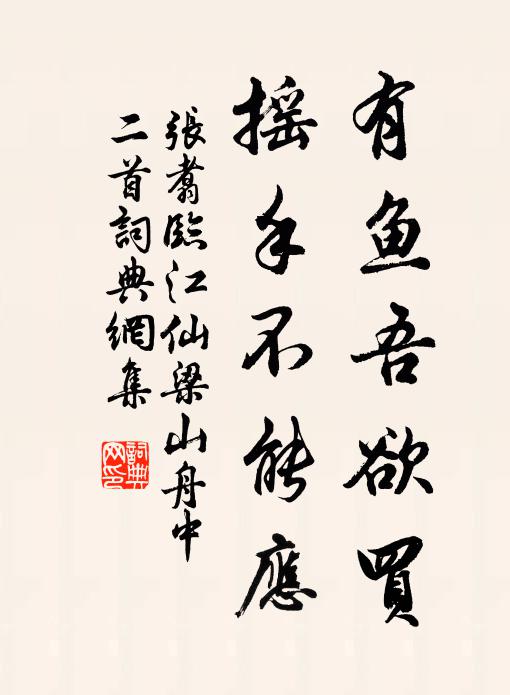 有鱼吾欲買
摇手不能應
張翥臨江仙梁山舟中
二首詞典網集
詞典
网印